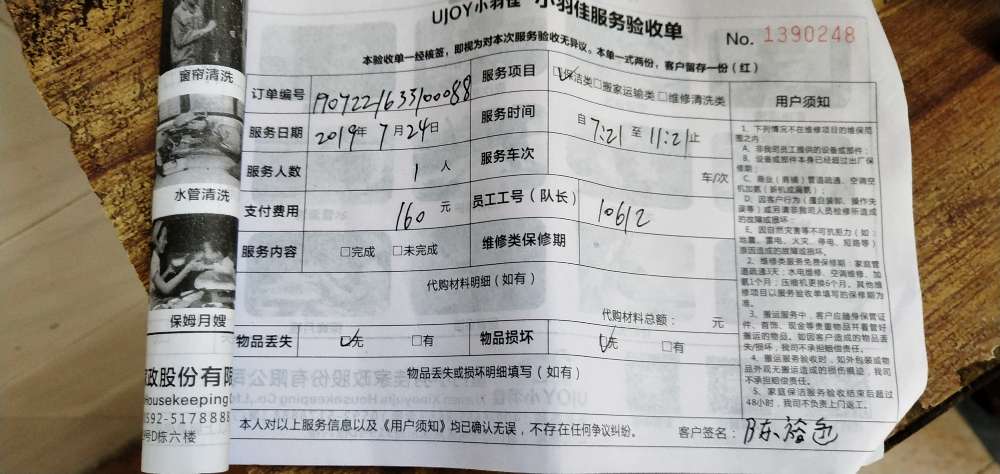 UJOY小羽佳 小羽佳服务验收单
No. 1390248
本验收单一经核签，即视为对本次服务验收无异议。本单一式两份，客户留存一份（红）
订单编号 190722163310088
服务项目 ☑保洁类□搬家运输类□维修清洗类
服务日期 2019年 7月24日
服务时间 自7:21至11:21止
服务人数 1人
服务车次 车/次
支付费用 160元
员工工号（队长） 10612
服务内容 □完成 □未完成
维修类保修期
代购材料明细（如有）
代购材料总额： 元
物品丢失 ☑无 □有
物品损坏 ☑无 □有
物品丢失或损坏明细填写（如有）
本人对以上服务信息以及《用户须知》均已确认无误，不存在任何争议纠纷。
客户签名：
用户须知
1、下列情况不在维修项目的维保范
围之内
A、非我司员工提供的设备或部件；
B、设备或部件本身已经超过出厂保
修期；
C、商业（商铺）管道疏通、空调空
机加氨（拆机或漏氟）；
D、因客户行为（擅自装卸、操作失
误等）或另请非我司人员检修所造成
的故障或损坏；
E、因自然灾害等不可抗力（如：
地震、雷电、火灾、停电、短路等）
原因造成的故障或损坏。
2、维修类服务免费保修期：家庭管
道疏通3天；水电维修、空调维修、加
氨1个月；压缩机更换6个月。其他维
修项目以服务验收单填写的保修期为
准。
3、搬运服务中，客户应随身保管证
件、首饰、现金等贵重物品并看管好
搬运的物品。如因客户造成的物品丢
失/损坏，我司不承担赔偿责任。
4、搬运服务验收时，如外包装或物
品外观无搬运造成的损伤痕迹，我司
不承担赔偿责任。
5、家庭保洁服务验收结束后超过
48小时，我司不负责上门返工。
窗帘清洗
水管清洗
保姆月嫂
政股份有限
Housekeeping
592-5178888
号D栋六楼